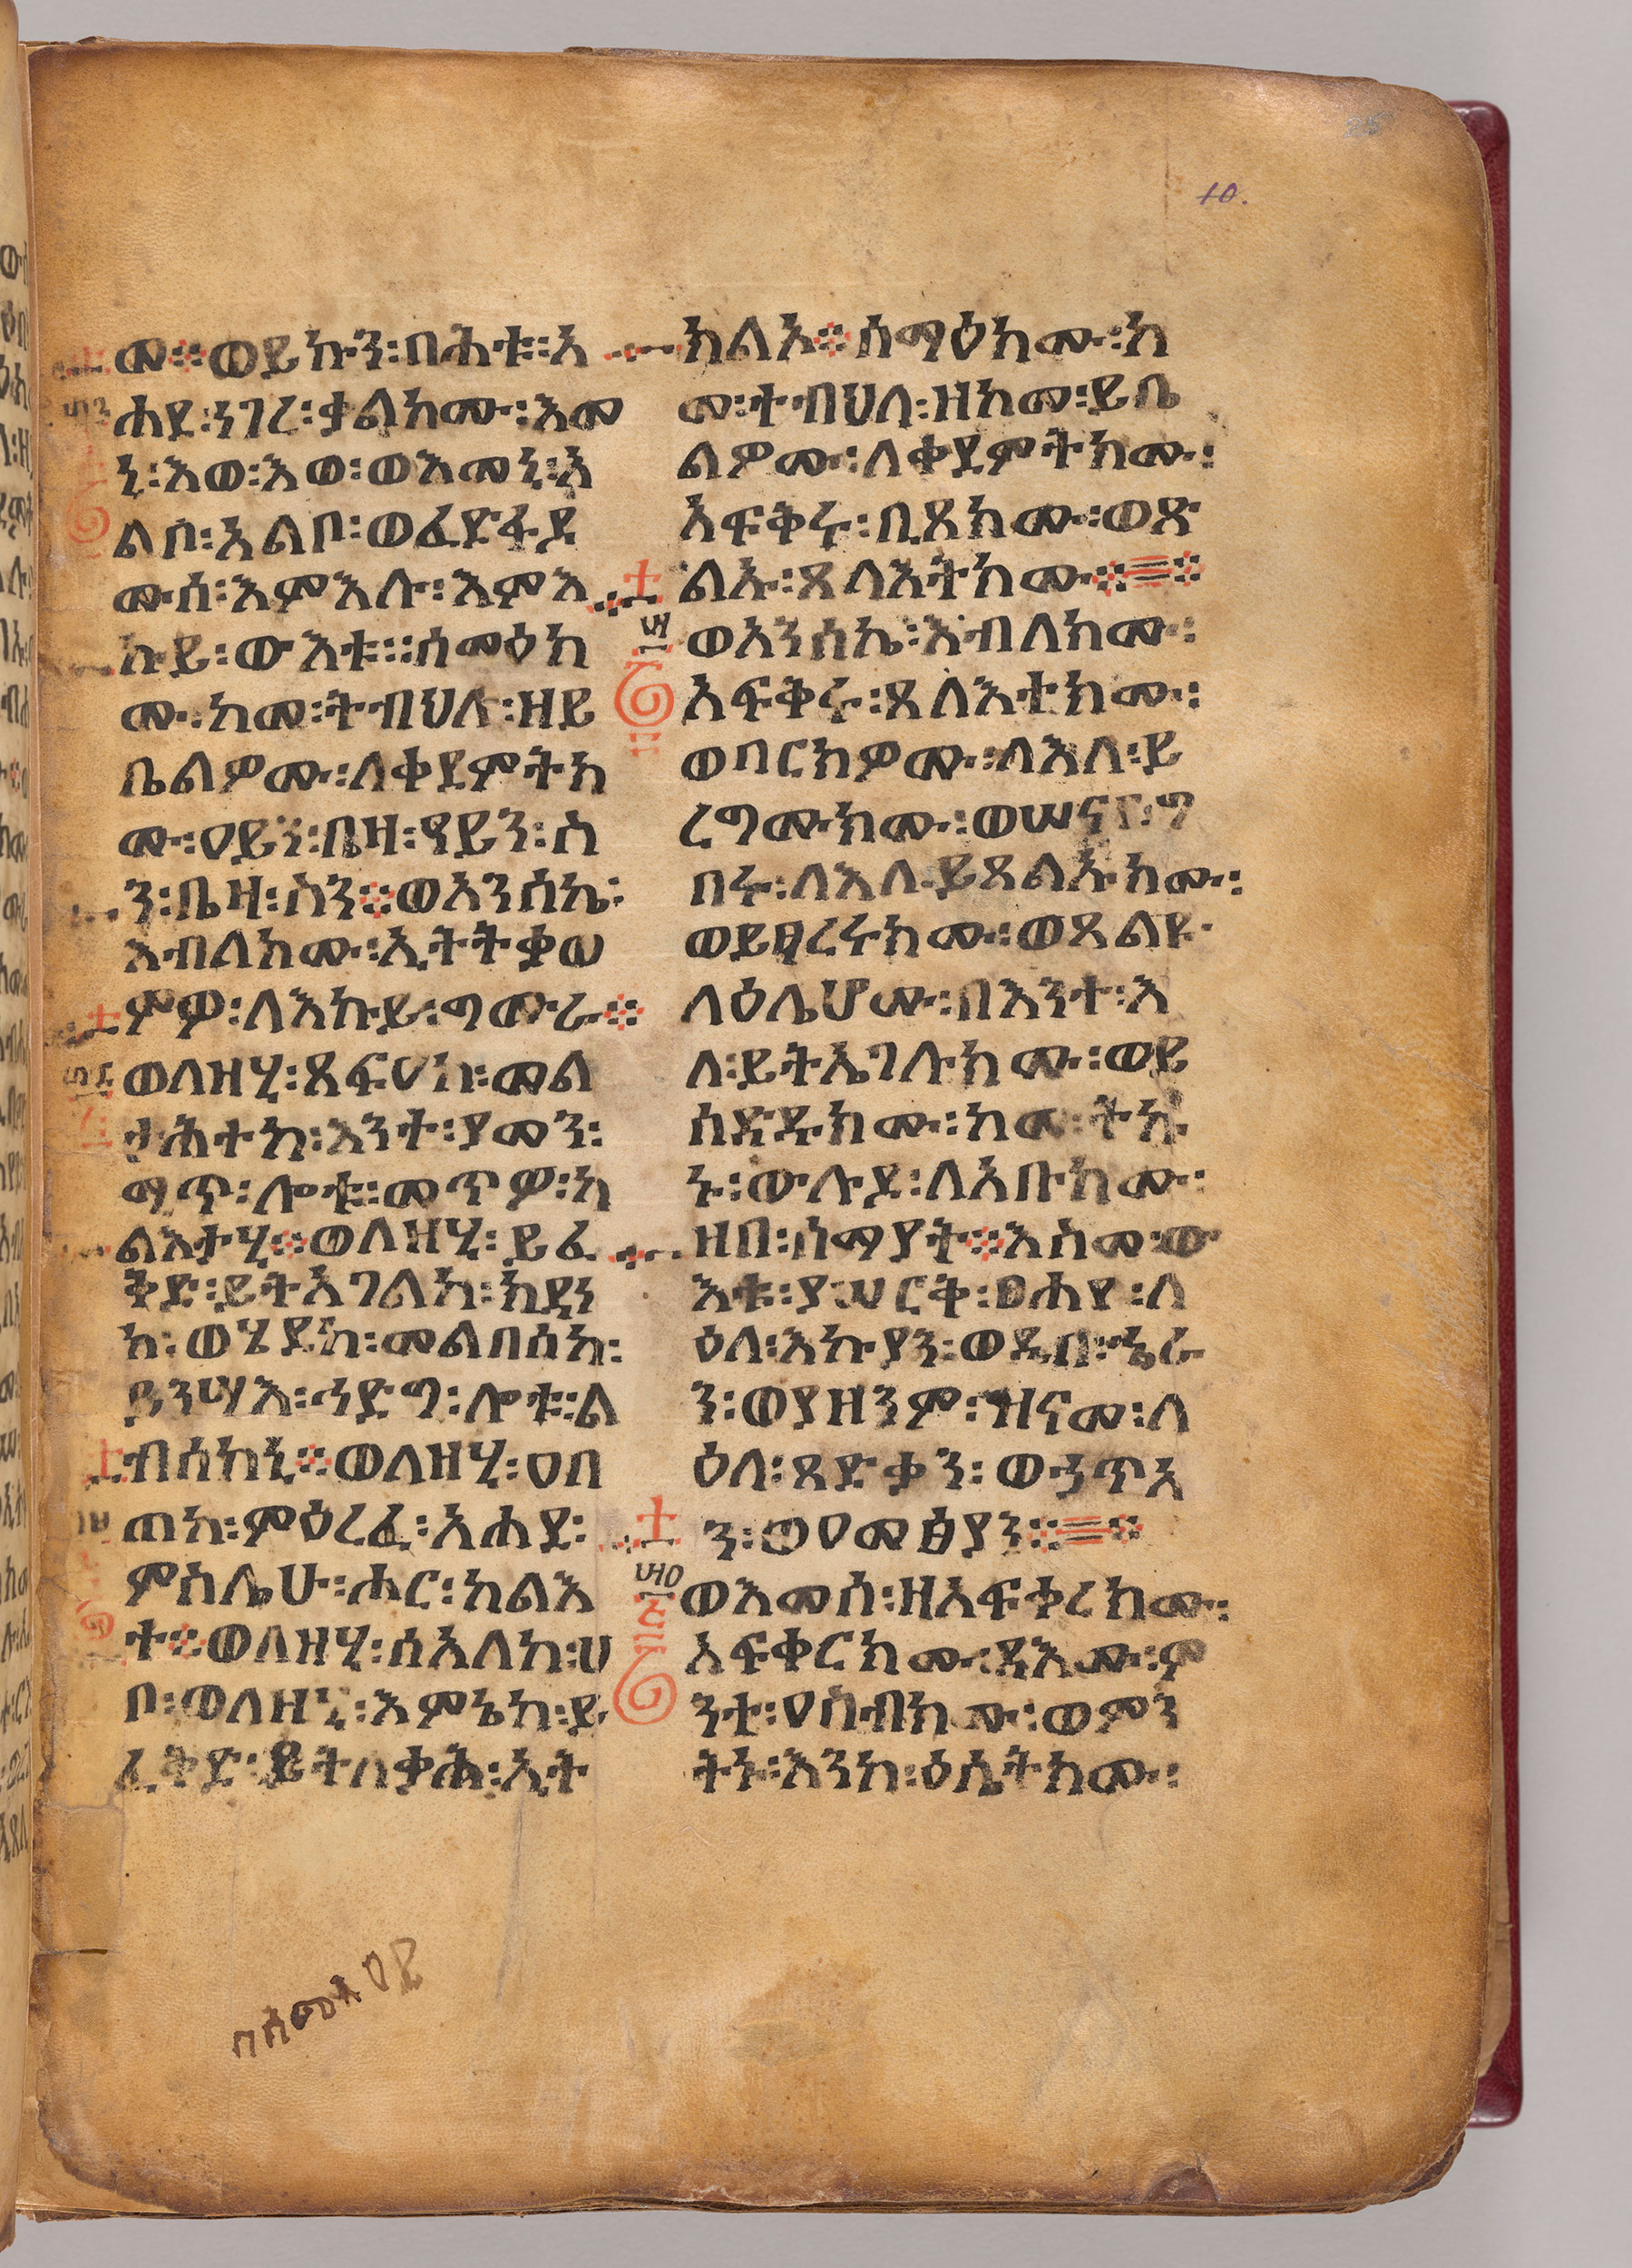 10.
መ፨ወይኩን፡በሕቱ፡አ
ሐደ፡ነገረ፡ቃልክሙ፡እመ
ኒ፡እወ፡እወ፡ወእመኒ፡አ
ልቦ፡አልቦ፡ወፈድፋደ
ሙሰ፡እምእሉ፡እምእ
ኩይ፡ውእቱ፡፡ሰመዕክ
ሙ፡ከመ፡ትብህለ፡ዘይ
ቤልዎሙ፡ለቀደምትክ
ሙ፡ዐይን፡ቤዛ፡ዓይን፡ስ
ን፡ቤዛ፡ስን፨ወአንሰኬ፡
እብለክሙ፡ኢትትቃወ
ምዎ፡ለእኩይ፡ግሙራ፨
ወለዘሂ፡ጸፍዐከ፡መል
ታሕተከ፡እንተ፡የመን፡
ሚጥ፡ሎቱ፡መጥዎ፡ካ
ልእተሂ፨ወለዘሂ፡ይፈ
ቅድ፡ይትአገልከ፡ክዳነ
ከ፡ወሄደከ፡መልበሰከ፡
ይንሣእ፡ኅድግ፡ሎቱ፡ል
ብሰከኒ፨ወለዘሂ፡ዐበ
ጠከ፡ምዕረፈ፡አሐደ፡
ምስሌሁ፡ሑር፡ክልእ
ተ፨ወለዘሂ፡ሰአለከ፡ሀ
ቦ፡ወለዘኒ፡እምኔከ፡ይ
ፈቅድ፡ይትለቃሕ፡ኢት
ክልእ፨ሰማዕክሙ፡ከ
መ፡ተብህለ፡ዘከመ፡ይቤ
ልዎሙ፡ለቀደምትክሙ፡
አፍቅሩ፡ቢጸክሙ፡ወጽ
ልኡ፡ጸላእትክሙ፨፨
፵፰
ወአንሰኬ፡እብለክሙ፡
አፍቅሩ፡ጸላእተክሙ፡
ወባርክዎሙ፡ለእለ፡ይ
ረግሙክሙ፡ወሠናየ፡ግ
በሩ፡ለእለ፡ይጸልኡክሙ፡
ወይፃረሩክሙ፡ወጸልዩ
ላዕሌሆሙ፡በእንተ፡እ
ለ፡ይትኤገሉክሙ፡ወይ
ሰድዱክሙ፡ከመ፡ትኩ
ኑ፡ውሉደ፡ለአቡክሙ፡
ዘበ፡ሰማያት፨እስመ፡ው
እቱ፡ያሠርቅ፡ፀሐየ፡ላ
ዕለ፡እኩያን፡ወዲበ፡ኄራ
ን፡ወያዘንም፡ዝናመ፡ላ
ዕለ፡ጻድቃን፡ወኃጥአ
ን፡ወዐመፅያን፨፨
ወእመሰ፡ዘአፍቀረክሙ፡
አፍቀርክሙ፡ዳእሙ፡ም
ንተ፡ዐስብክሙ፡ወምን
ትኑ፡እንከ፡ዕሴትክሙ፡